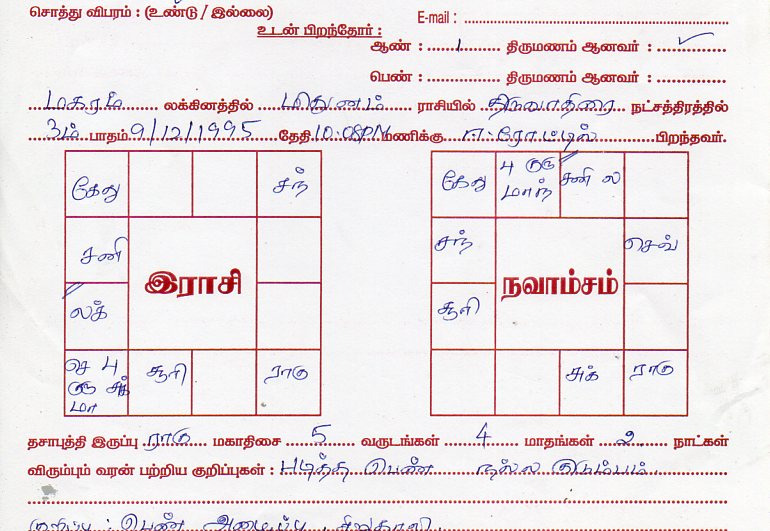 சொத்து விபரம் : (உண்டு / இல்லை)
E-mail :
உடன் பிறந்தோர் :
ஆண் : 1 திருமணம் ஆனவர் : ✓
பெண் : திருமணம் ஆனவர் :
மகரம் லக்கினத்தில் மிதுனம் ராசியில் திருவாதிரை நட்சத்திரத்தில்
3ம் பாதம் 9/12/1995 தேதி 10.08PM மணிக்கு பிறந்தவர்.
கேது சந்
சனி
இராசி
லக்
செ 4 சூரி ராகு
குரு சுக்
மா
கேது 4 குரு சனி ல
மாந்
சந் செவ்
நவாம்சம்
சூரி
சுக் ராகு
தசாபுத்தி இருப்பு ராகு மகாதிசை 5 வருடங்கள் 4 மாதங்கள் 2 நாட்கள்
விரும்பும் வரன் பற்றிய குறிப்புகள் : படித்த பெண் நல்ல குடும்பம்
குறிப்பு : பெண் அழைப்பு